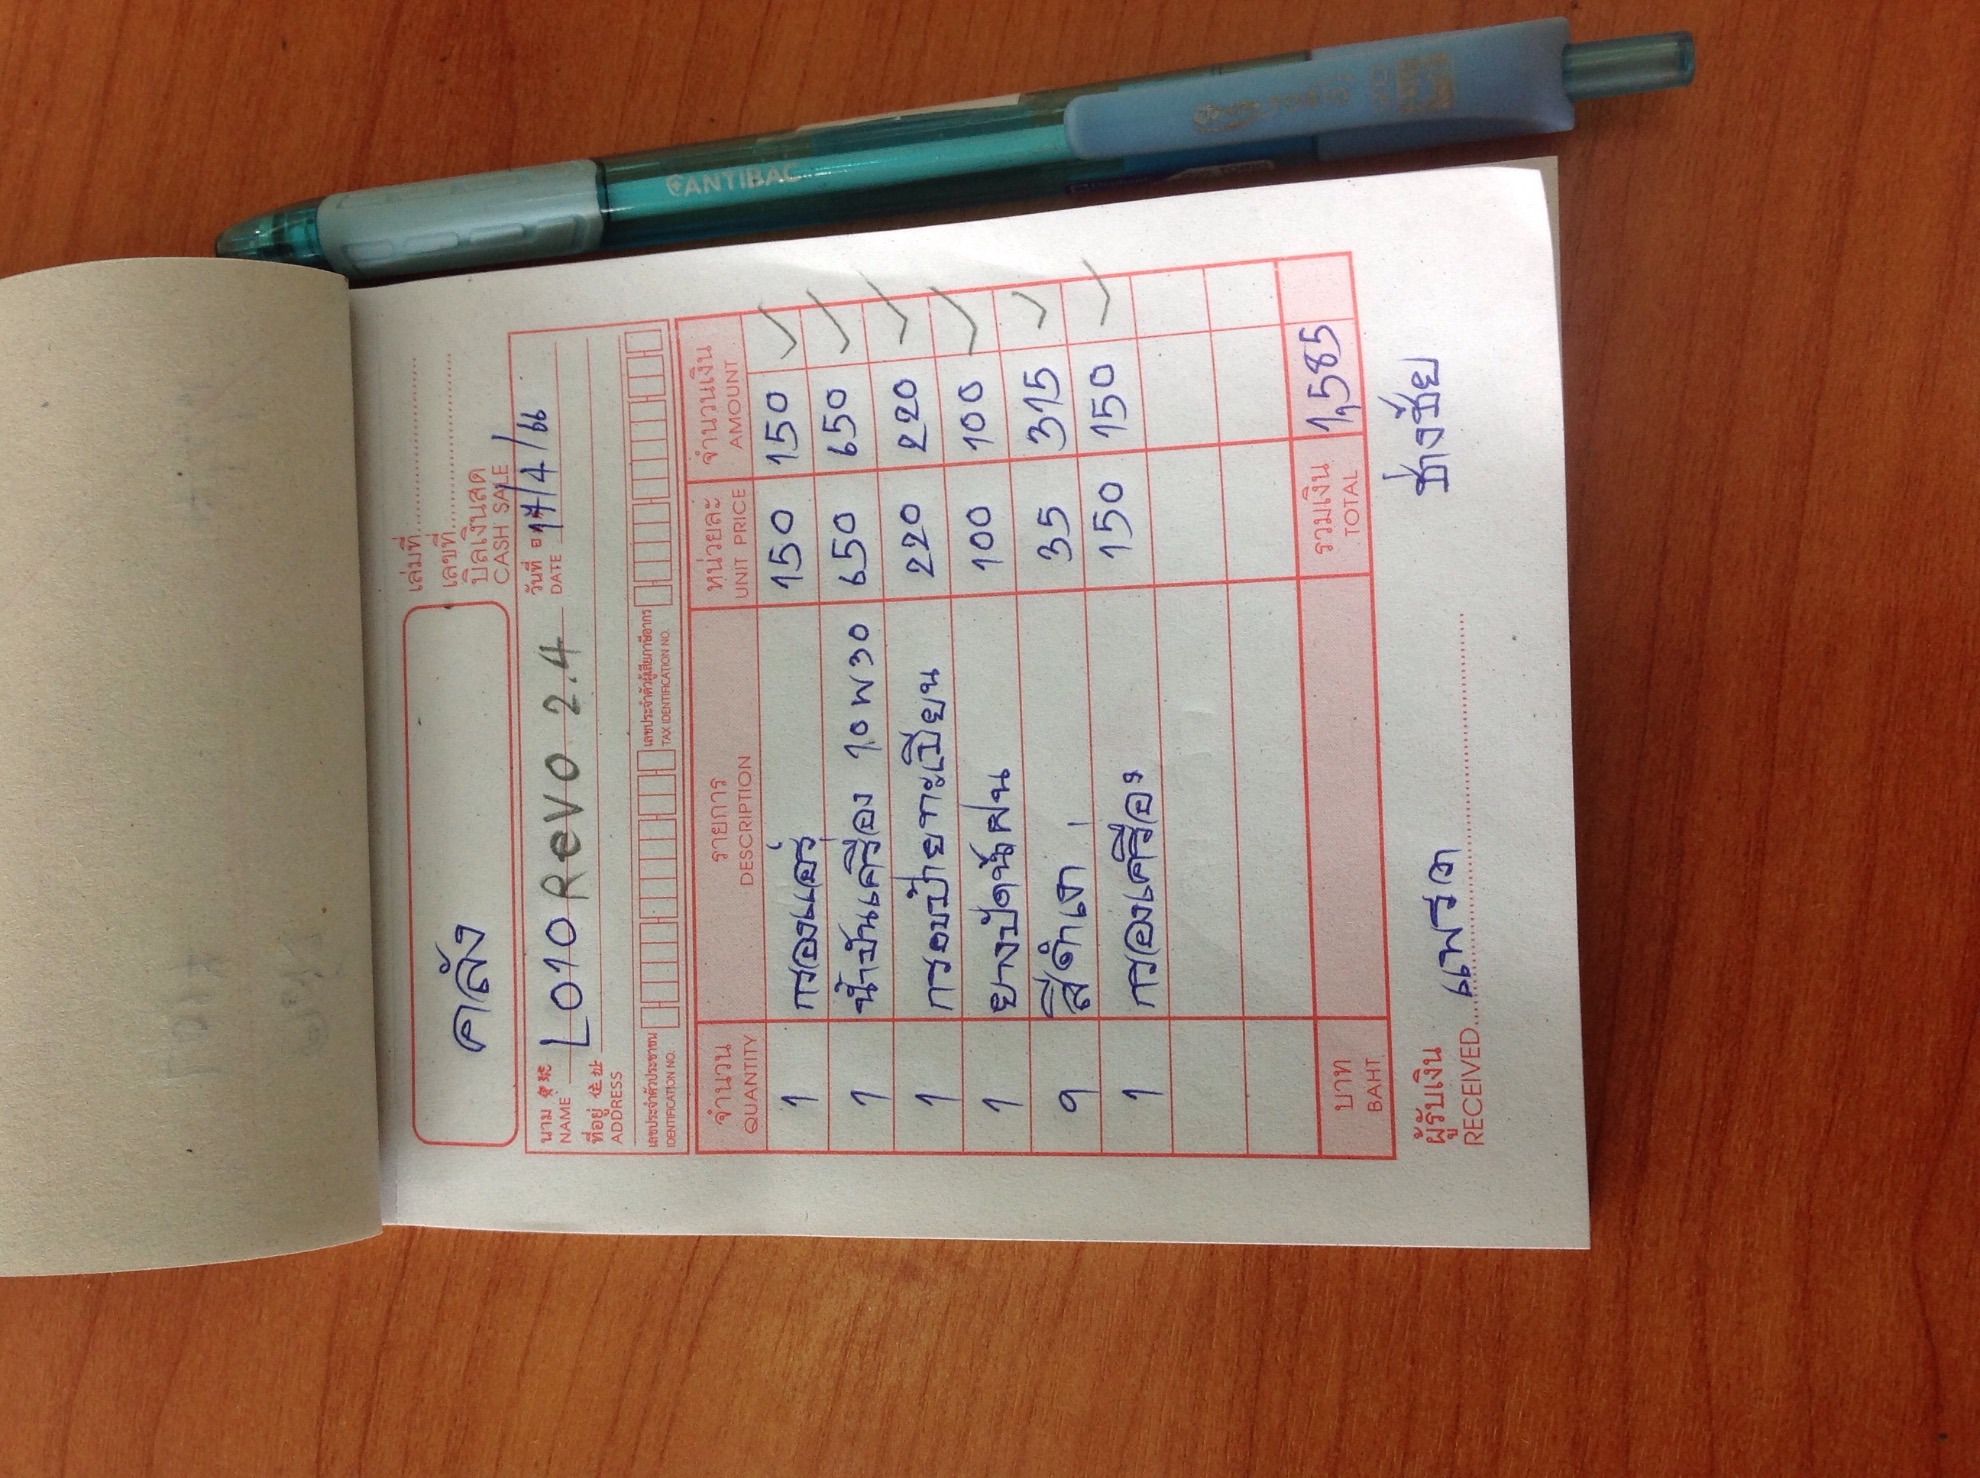 ANTIBAC
เล่มที่
เลขที่
บิลเงินสด
CASH SALE
คลัง
นาม NAME LO10 ReVO 2.4 วันที่ DATE 17/4/66
ที่อยู่ 住址
ADDRESS
เลขประจำตัวประชาชน เลขประจำตัวผู้เสียภาษีอากร
IDENTIFICATION NO. TAX IDENTIFICATION NO.
จำนวน รายการ หน่วยละ จำนวนเงิน
QUANTITY DESCRIPTION UNIT PRICE AMOUNT
1 กรองแอร์ 150 150 ✓
1 น้ำมันเครื่อง 10W30 650 650 ✓
1 กรอบป้ายทะเบียน 220 220 ✓
1 ยางปัดน้ำฝน 100 100 ✓
9 สีดำเงา 35 315 ✓
1 กรองเครื่อง 150 150 ✓
บาท รวมเงิน 1,585
BAHT TOTAL
ผู้รับเงิน
RECEIVED แพรวา ช่างชัย